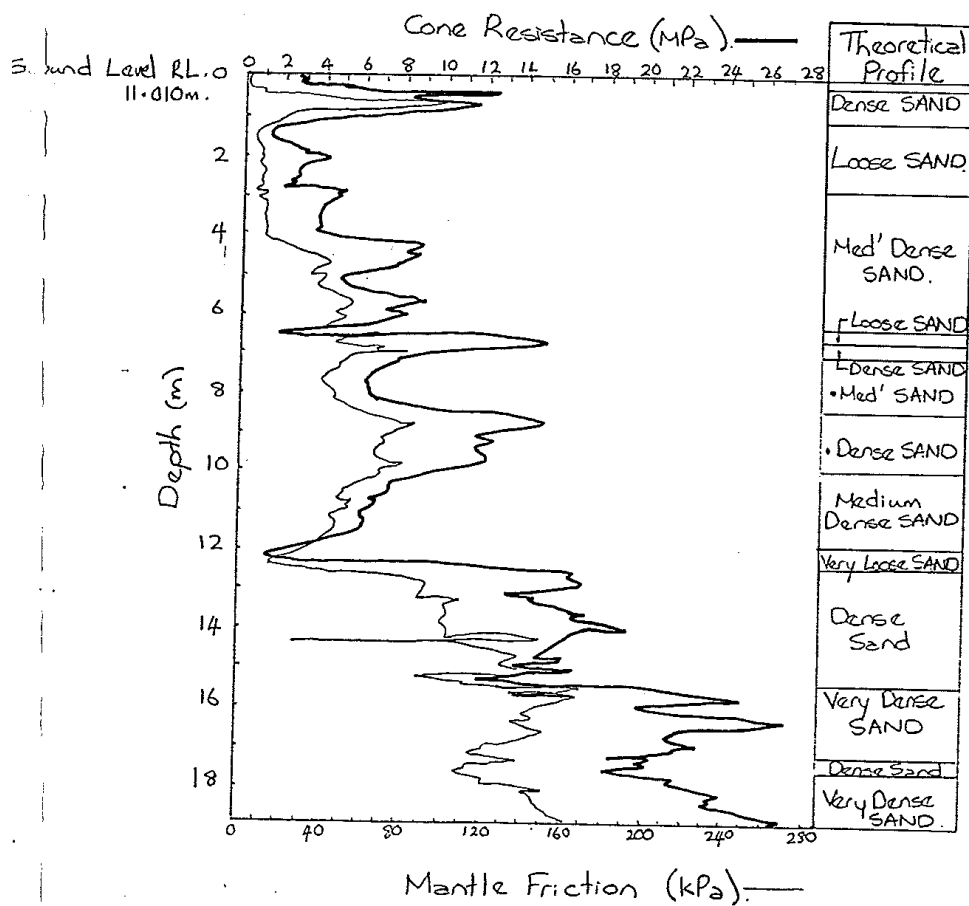 Cone Resistance (MPa).
Theoretical Profile
Level RL.
11.010m.
0 2 4 6 8 10 12 14 16 18 20 22 24 26 28
Dense SAND
2
Loose SAND.
4
Med' Dense
SAND.
6
Loose SAND
Dense SAND
8
•Med' SAND
Depth (m)
•Dense SAND
10
Medium
Dense SAND
12
Very Loose SAND
14
Dense
Sand
16
Very Dense
SAND
Dense Sand
18
Very Dense
SAND.
0 40 80 120 160 200 240 280
Mantle Friction (kPa).